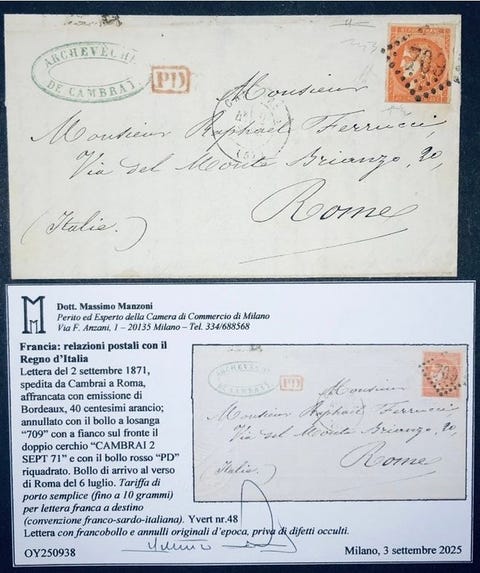 ARCHEVÊCHÉ
DE CAMBRAI
PD
709
Monsieur
Monsieur Raphaël Ferrucci,
Via del Monte Brianzo, 20,
Rome
(Italie)
Dott. Massimo Manzoni
Perito ed Esperto della Camera di Commercio di Milano
Via F. Anzani, 1 – 20135 Milano – Tel. 334/688568
Francia: relazioni postali con il
Regno d’Italia
Lettera del 2 settembre 1871,
spedita da Cambrai a Roma,
affrancata con emissione di
Bordeaux, 40 centesimi arancio;
annullato con il bollo a losanga
“709” con a fianco sul fronte il
doppio cerchio “CAMBRAI 2
SEPT 71” e con il bollo rosso “PD”
riquadrato. Bollo di arrivo al verso
di Roma del 6 luglio. Tariffa di
porto semplice (fino a 10 grammi)
per lettera franca a destino
(convenzione franco-sardo-italiana). Yvert nr.48
Lettera con francobollo e annulli originali d’epoca, priva di difetti occulti.
OY250938
Milano, 3 settembre 2025
ARCHEVÊCHÉ
DE CAMBRAI
PD
709
Monsieur
Monsieur Raphaël Ferrucci,
Via del Monte Brianzo, 20,
Rome
(Italie)